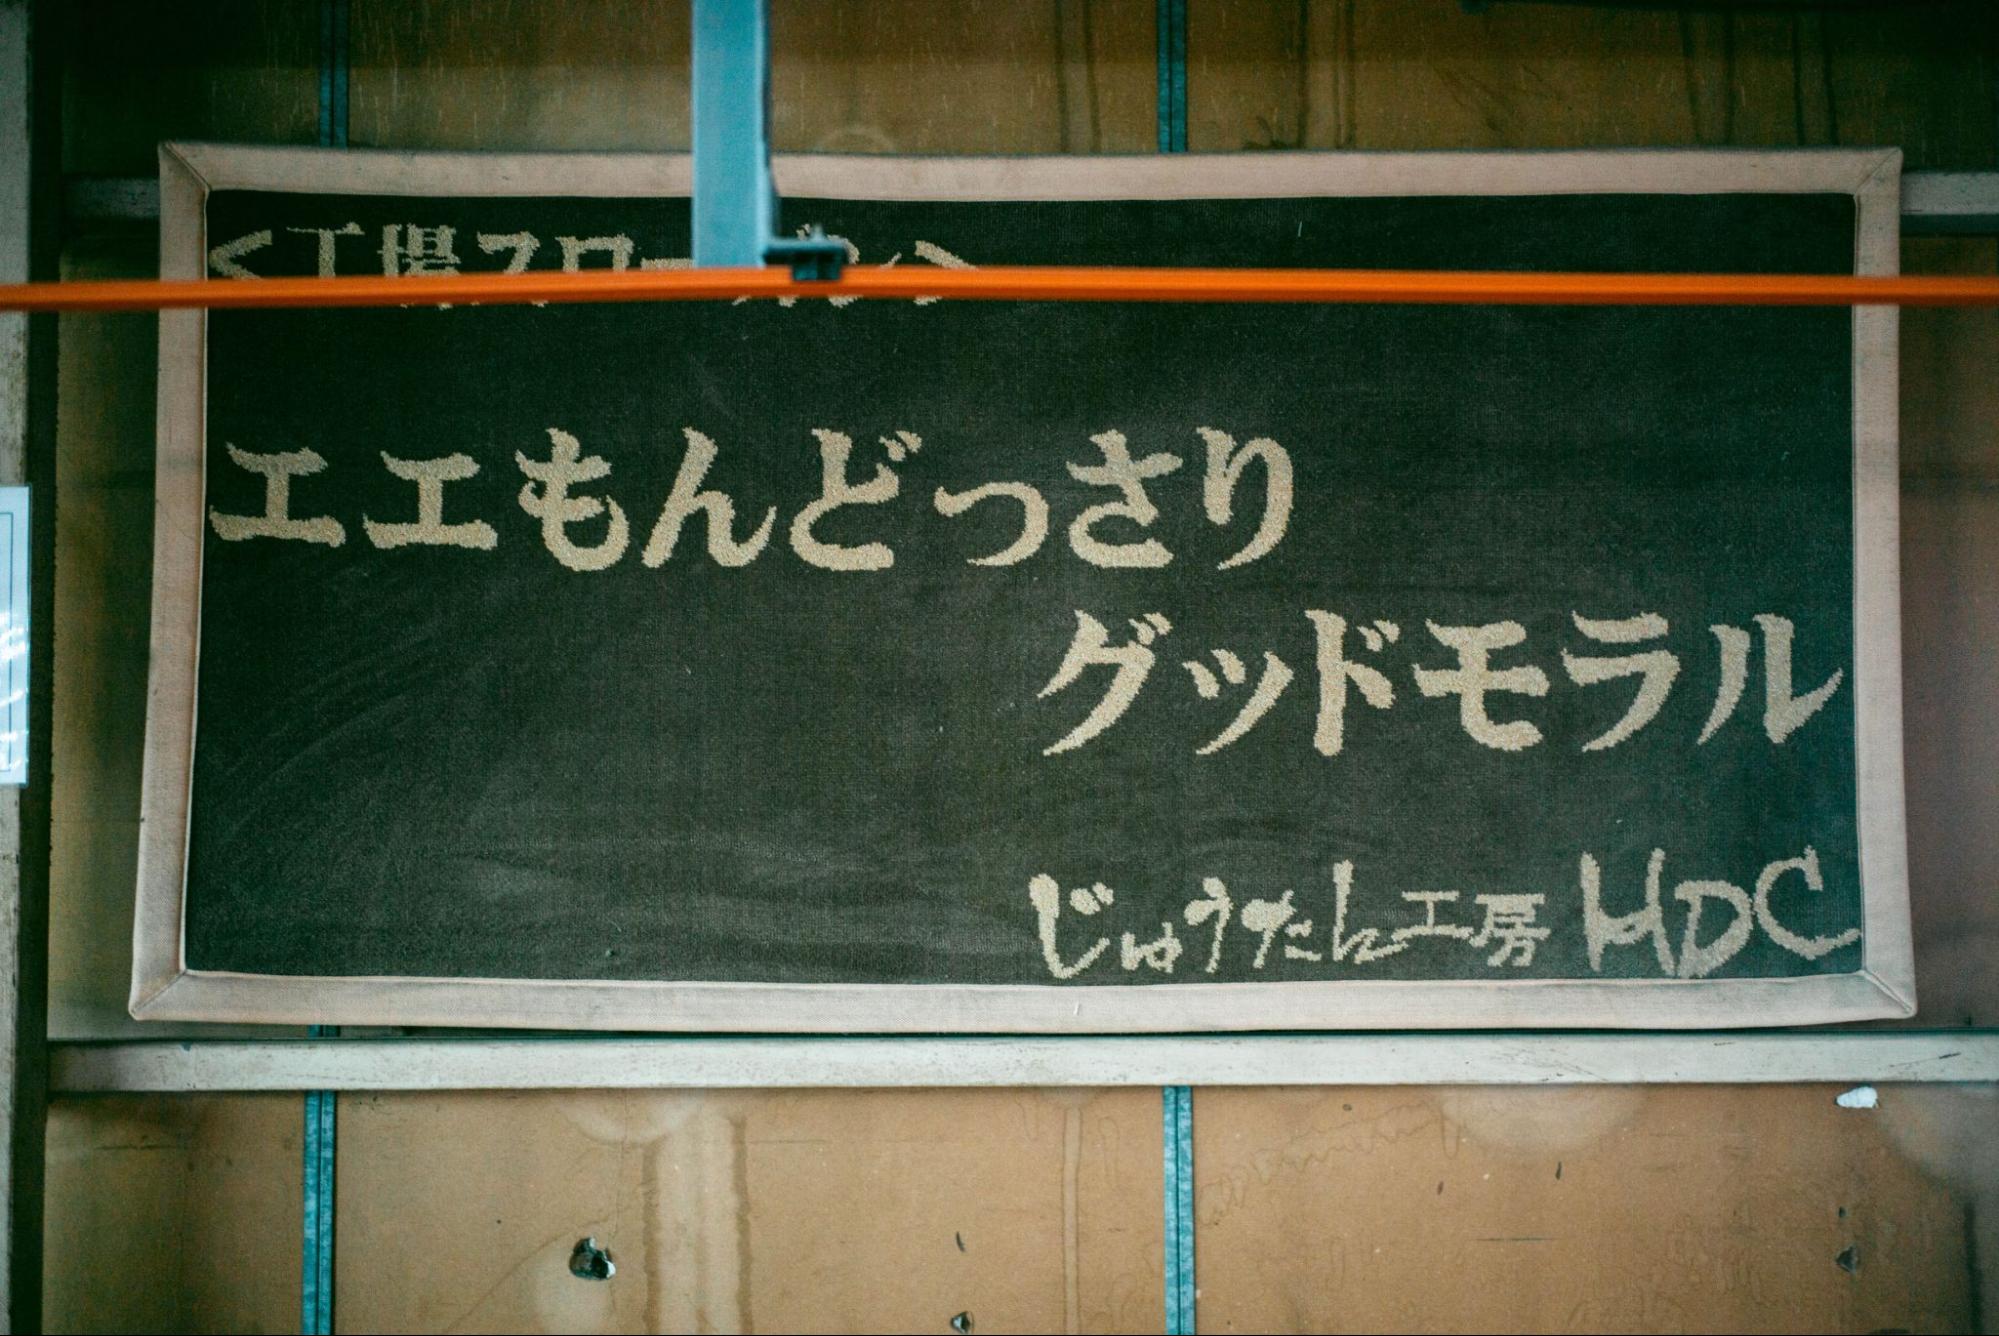 <工場スローガン>
エエもんどっさり
グッドモラル
じゅうたん工房 HDC